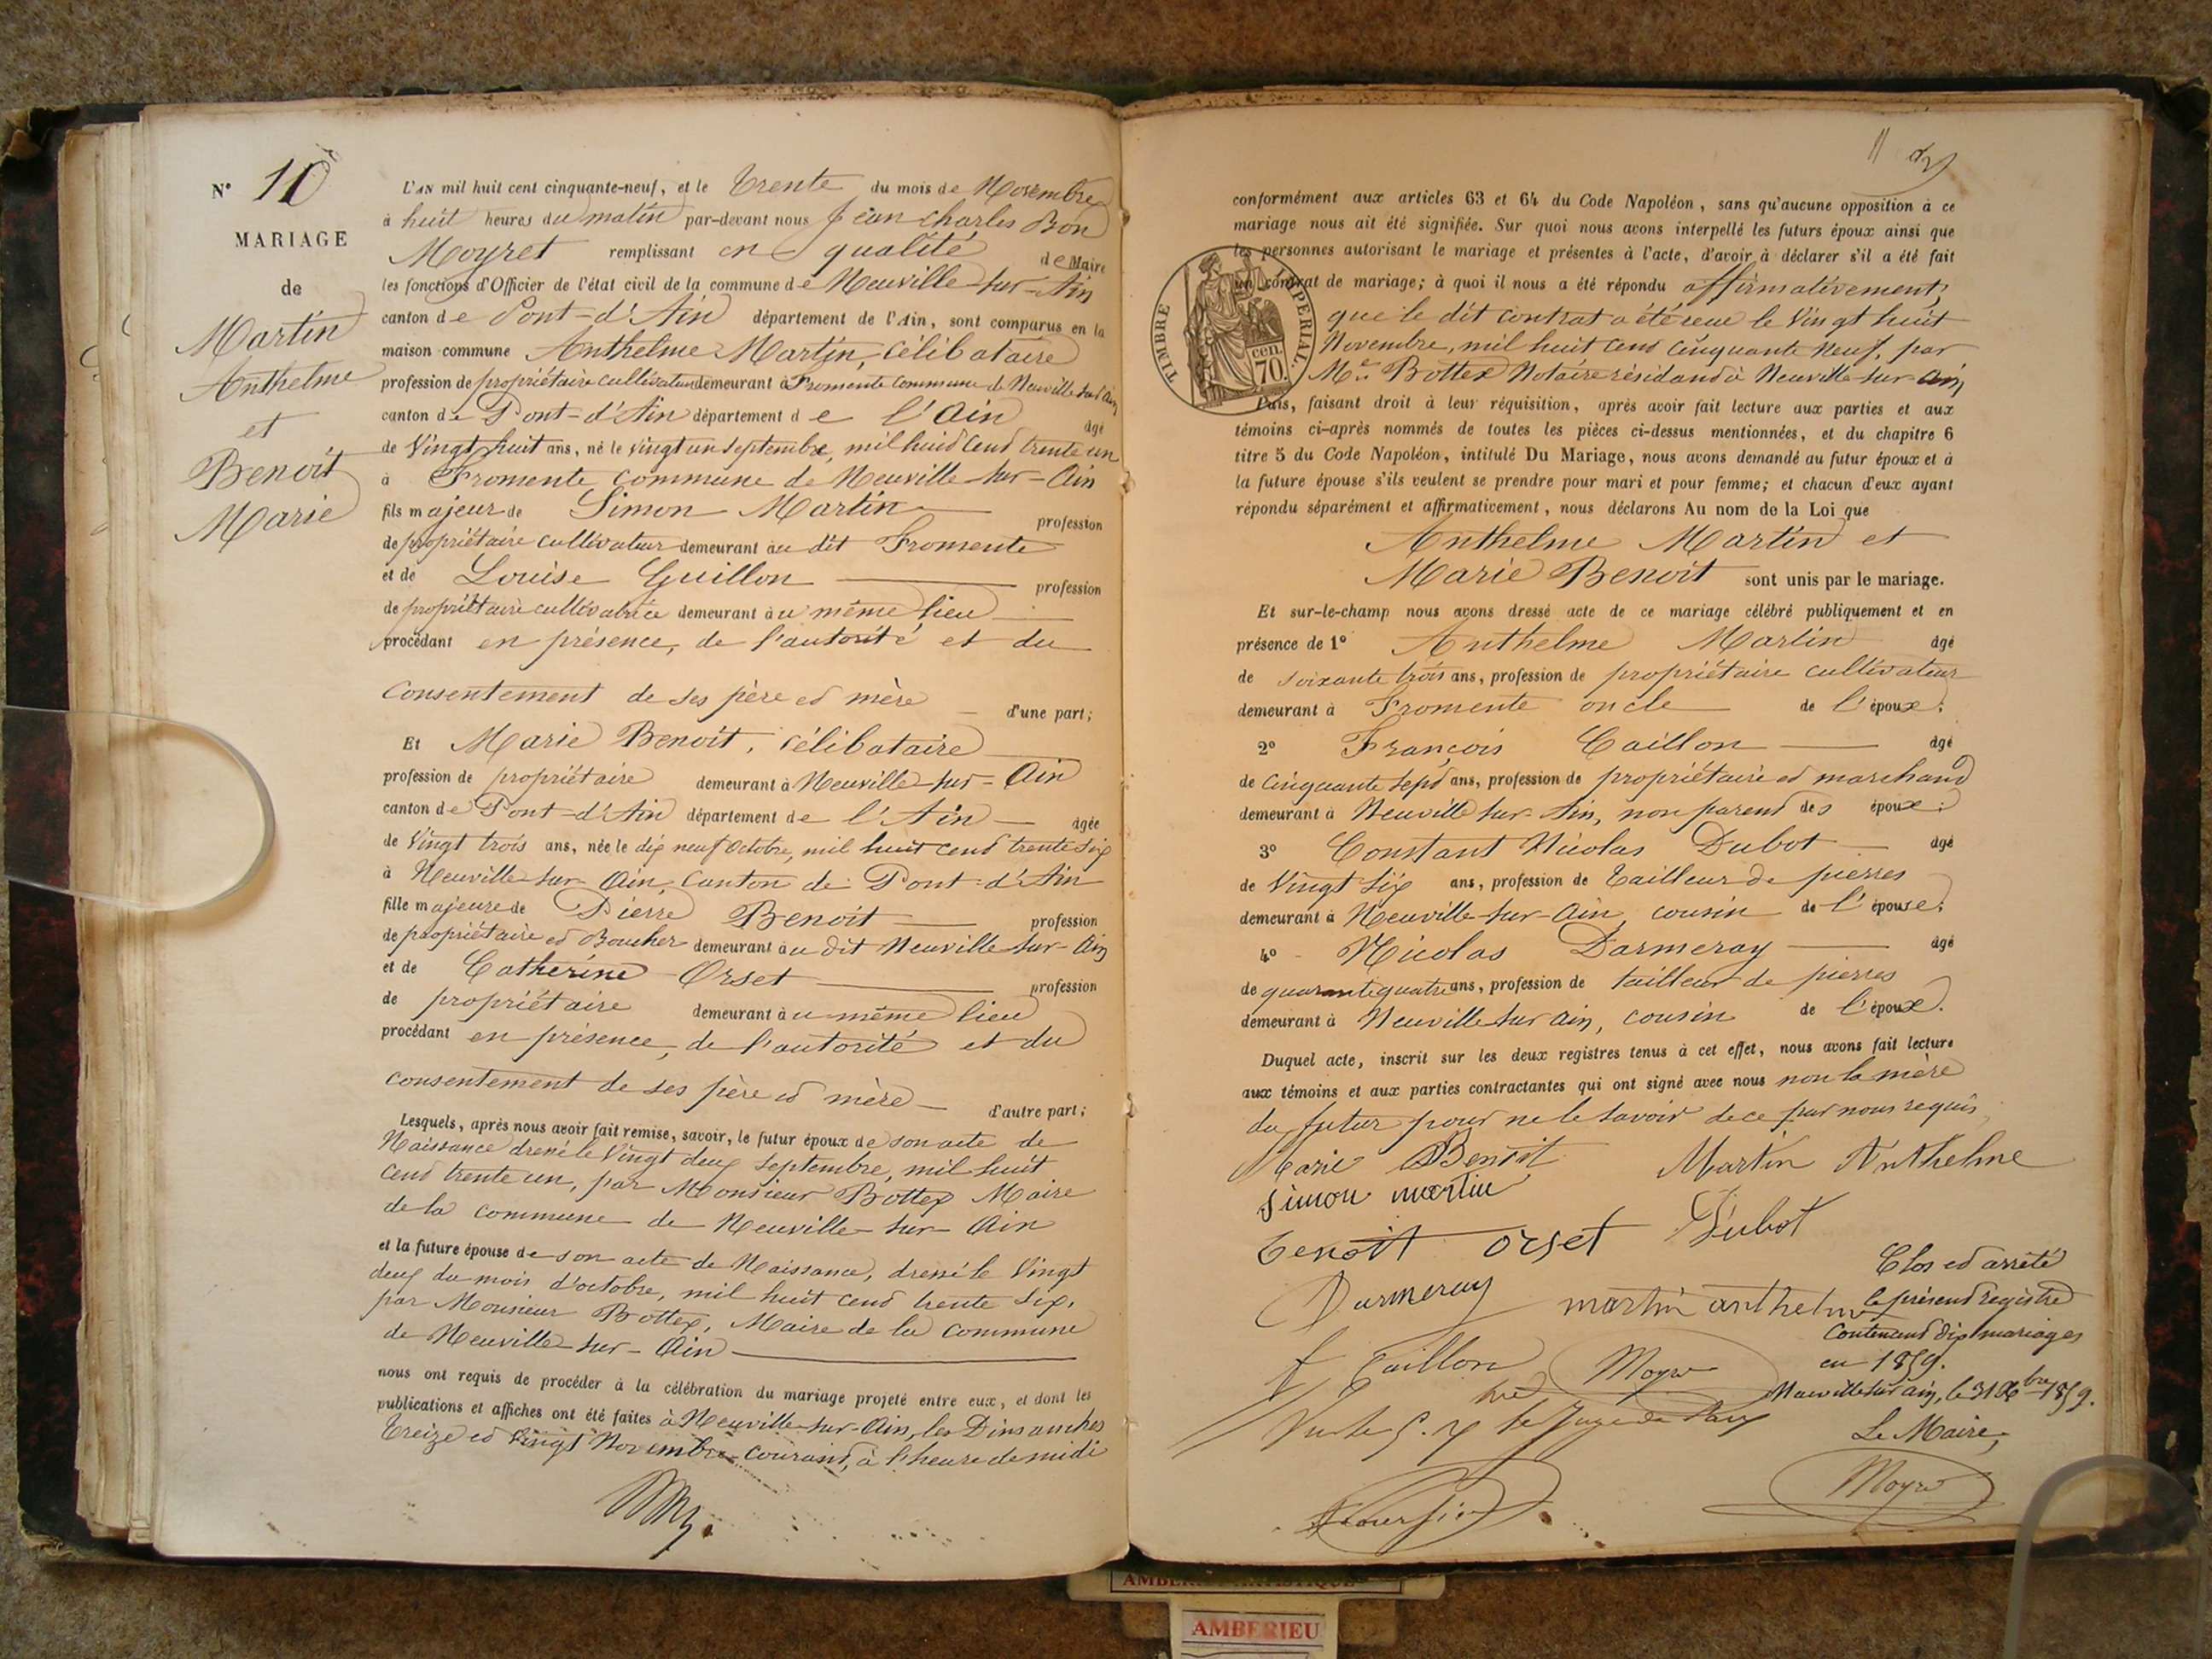 N° 10
MARIAGE
de
Martin
Anthelme
et
Benoit
Marie
L'AN mil huit cent cinquante-neuf, et le Trente du mois de Novembre
à huit heures du matin par-devant nous Jean Charles Bon
Moyret remplissant en qualité de Maire
les fonctions d'Officier de l'état civil de la commune de Neuville-sur-Ain
canton de Pont-d'Ain département de l'Ain, sont comparus en la
maison commune Anthelme Martin, célibataire
profession de propriétaire cultivateur demeurant à Fromente commune de Neuville sur Ain
canton de Pont-d'Ain département de l'Ain âgé
de Vingt huit ans, né le vingt un Septembre, mil huit cent trente un
à Fromente commune de Neuville-sur-Ain
fils majeur de Simon Martin profession
de propriétaire cultivateur demeurant au dit Fromente
et de Louise Guillon profession
de propriétaire cultivatrice demeurant au même lieu
procédant en présence, de l'autorité et du
consentement de ses père et mère d'une part;
Et Marie Benoit, célibataire
profession de propriétaire demeurant à Neuville-sur-Ain
canton de Pont-d'Ain département de l'Ain âgée
de Vingt trois ans, née le dix neuf Octobre, mil huit cent trente six
à Neuville-sur-Ain, Canton de Pont-d'Ain
fille majeure de Pierre Benoit profession
de propriétaire et Boucher demeurant au dit Neuville-sur-Ain
et de Catherine Orset profession
de propriétaire demeurant au même lieu
procédant en présence, de l'autorité et du
consentement de ses père et mère d'autre part;
Lesquels, après nous avoir fait remise, savoir, le futur époux de son acte de
Naissance dressé le Vingt deux Septembre, mil huit
cent trente un, par Monsieur Bottex Maire
de la commune de Neuville-sur-Ain
et la future épouse de son acte de Naissance, dressé le Vingt
deux du mois d'octobre, mil huit cent trente six,
par Monsieur Bottex, Maire de la commune
de Neuville-sur-Ain
nous ont requis de procéder à la célébration du mariage projeté entre eux, et dont les
publications et affiches ont été faites à Neuville-sur-Ain, les Dimanches
Treize et Vingt Novembre courant, à l'heure de midi
11
conformément aux articles 63 et 64 du Code Napoléon, sans qu'aucune opposition à ce
mariage nous ait été signifiée. Sur quoi nous avons interpellé les futurs époux ainsi que
les personnes autorisant le mariage et présentes à l'acte, d'avoir à déclarer s'il a été fait
un contrat de mariage; à quoi il nous a été répondu affirmativement,
que le dit contrat a été reçu le Vingt huit
Novembre, mil huit cent cinquante neuf, par
Me Bottex Notaire résidant à Neuville-sur-Ain
TIMBRE IMPERIAL.
cen.
70.
Puis, faisant droit à leur réquisition, après avoir fait lecture aux parties et aux
témoins ci-après nommés de toutes les pièces ci-dessus mentionnées, et du chapitre 6
titre 5 du Code Napoléon, intitulé Du Mariage, nous avons demandé au futur époux et à
la future épouse s'ils veulent se prendre pour mari et pour femme; et chacun d'eux ayant
répondu séparément et affirmativement, nous déclarons Au nom de la Loi que
Anthelme Martin et
Marie Benoit sont unis par le mariage.
Et sur-le-champ nous avons dressé acte de ce mariage célébré publiquement et en
présence de 1° Anthelme Martin âgé
de soixante trois ans, profession de propriétaire cultivateur
demeurant à Fromente oncle de l'époux;
2° François Caillon âgé
de cinquante sept ans, profession de propriétaire et marchand
demeurant à Neuville sur Ain, non parent des époux;
3° Constant Nicolas Dubot âgé
de Vingt Six ans, profession de Tailleur de pierres
demeurant à Neuville-sur-Ain, cousin de l'épouse;
4° Nicolas Darmeray âgé
de quarante quatre ans, profession de tailleur de pierres
demeurant à Neuville sur Ain, cousin de l'époux.
Duquel acte, inscrit sur les deux registres tenus à cet effet, nous avons fait lecture
aux témoins et aux parties contractantes qui ont signé avec nous non la mère
du futur pour ne le savoir de ce par nous requis
Marie Benoit Martin Anthelme
Simon martin
benoit orset Dubot
Darmeray martin anthelme
f Caillon Moyret
Vu le Juge de Paix
Clos et arrêté
le présent registre
contenant dix mariages
en 1859.
Neuville sur Ain, le 31 Xbre 1859.
Le Maire,
Moyret
AMBERIEU